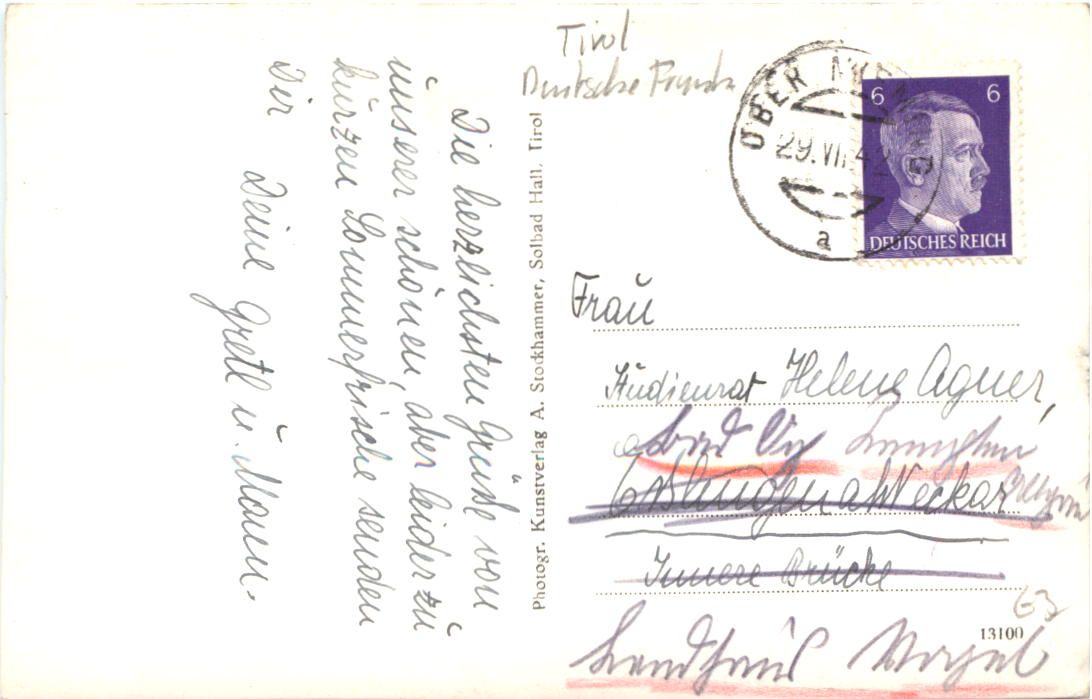 Tirol
Deutsche
OBER
29.VII.42
a
6 6
DEUTSCHES REICH
Die herzlichsten Grüße von
unserer schönen, aber leider zu
kurzen Sommerfrische senden
Dir
Deine Gretl u. Mann.
Photogr. Kunstverlag A. Stockhammer, Solbad Hall, Tirol
Frau
Studienrat Helene Agner,
Bad Oy
Esslingen a/Neckar
Innere Brücke
Landhaus Vogel
63
13100